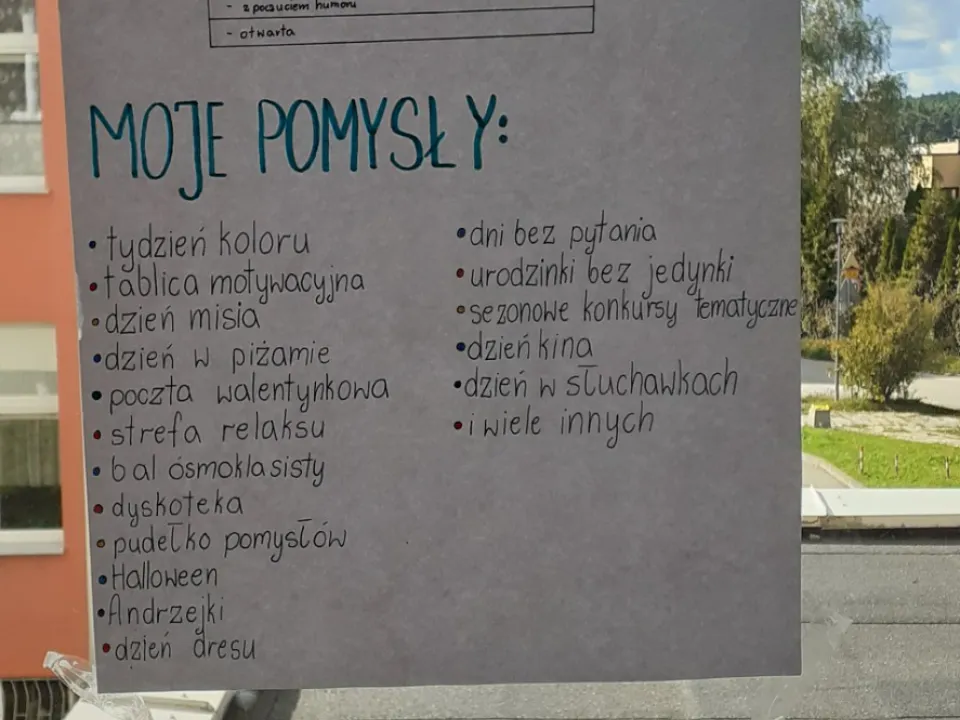 - z poczuciem humoru
- otwarta
MOJE POMYSŁY:
• tydzień koloru
• tablica motywacyjna
• dzień misia
• dzień w piżamie
• poczta walentynkowa
• strefa relaksu
• bal ósmoklasisty
• dyskoteka
• pudełko pomysłów
• Halloween
• Andrzejki
• dzień dresu
• dni bez pytania
• urodzinki bez jedynki
• sezonowe konkursy tematyczne
• dzień kina
• dzień w słuchawkach
• i wiele innych